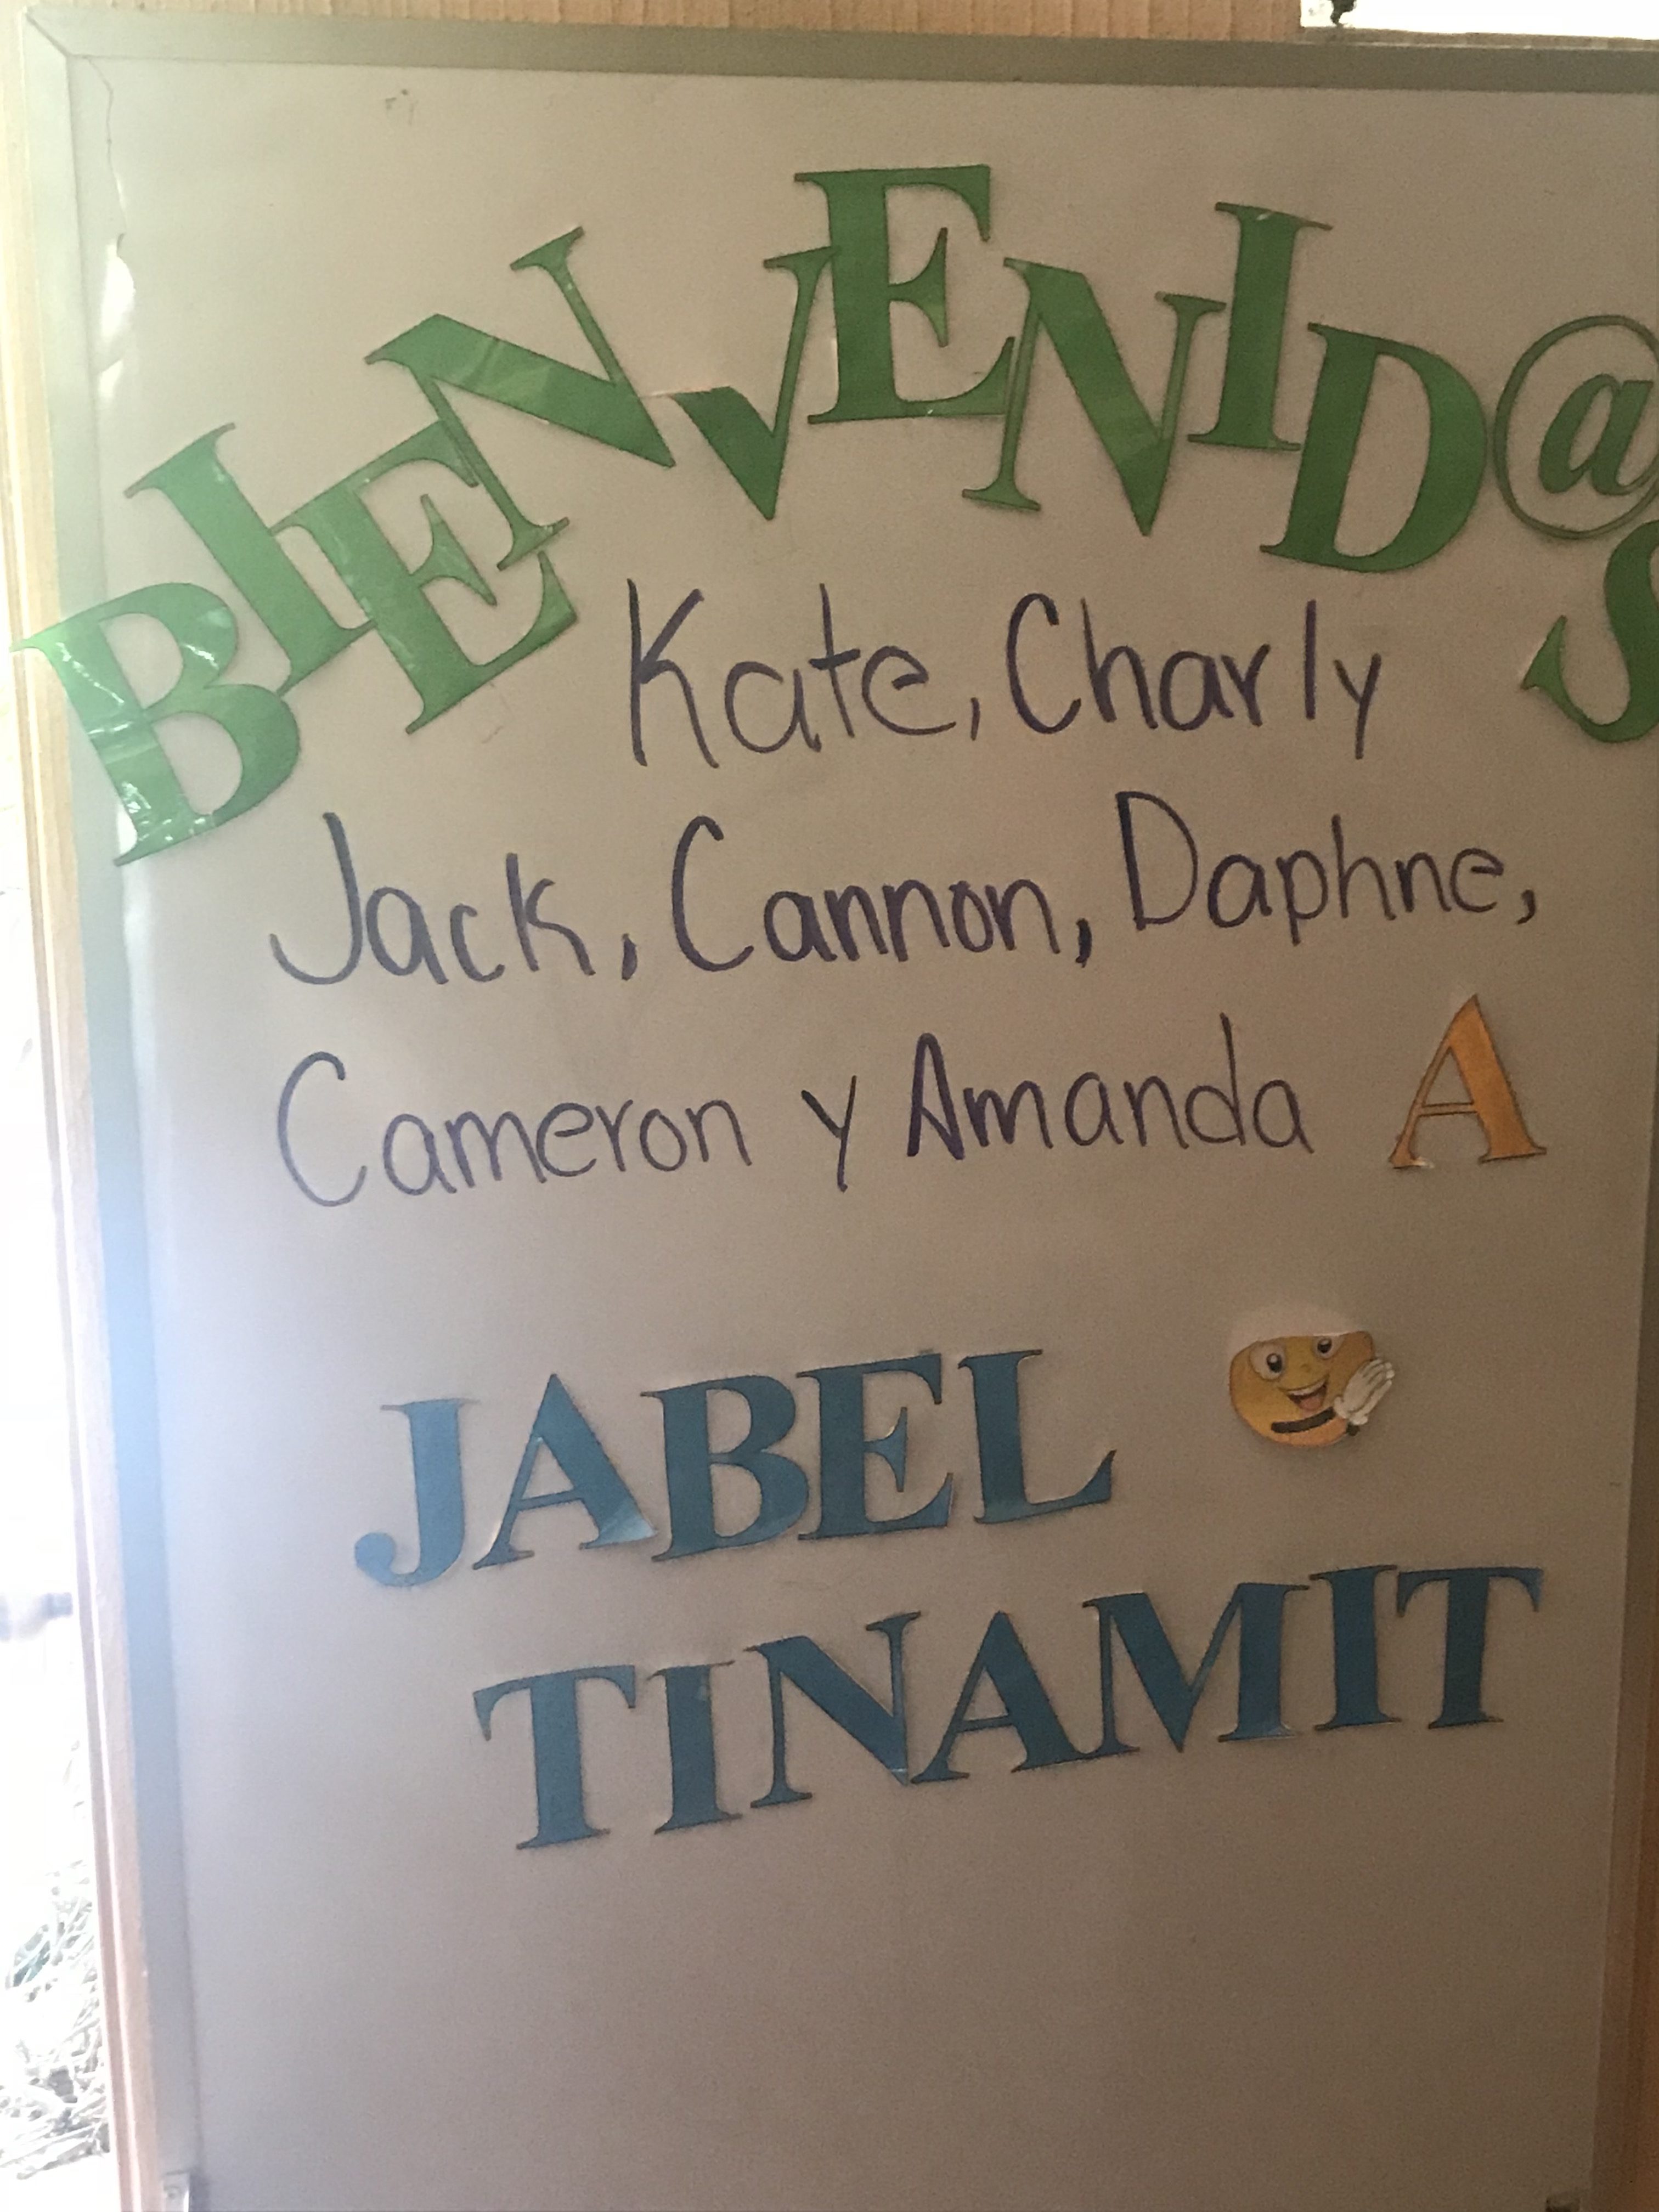 BIENVENID@S
Kate, Charly
Jack, Cannon, Daphne,
Cameron y Amanda A
JABEL
TINAMIT